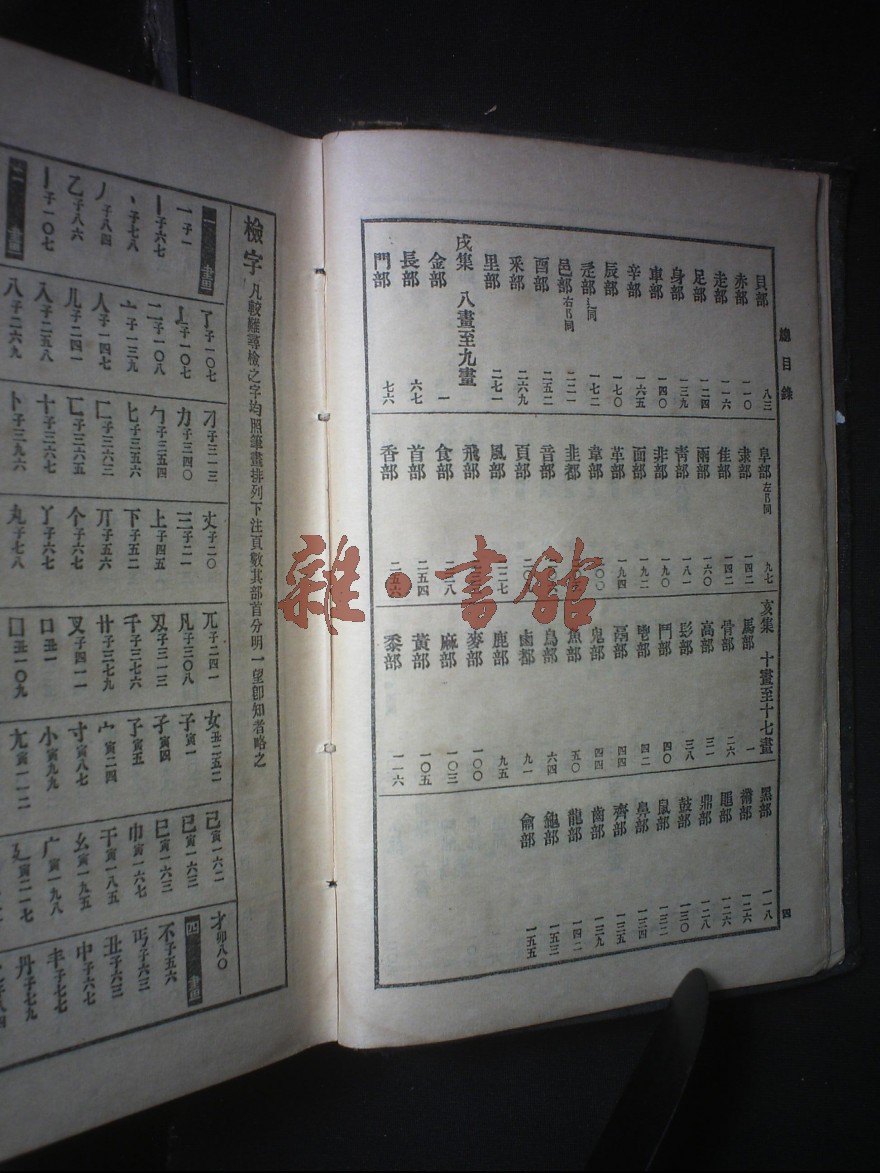 總目錄
四
貝部 八三
赤部 一一〇
走部 一一六
足部 一二四
身部 一三九
車部 一四〇
辛部 一六五
辰部 一七〇
辵部 辶同 一七二
邑部 右阝同 二二一
酉部 二五二
釆部 二六九
里部 二七一
戌集 八畫至九畫
金部 一
長部 六七
門部 七六
阜部 左阝同 九七
隶部 一四二
隹部 一四二
雨部 一六〇
靑部 一八一
非部 一九〇
面部 一九二
革部 一九四
韋部
韭部
音部
頁部 二〇
風部 二二七
飛部
食部 二三八
首部 二五四
香部 二五六
亥集 十畫至十七畫
馬部 一
骨部 二六
高部 三一
髟部 三八
鬥部 四〇
鬯部 四二
鬲部 四四
鬼部 四四
魚部 五〇
鳥部 六四
鹵部 九一
鹿部 九五
麥部 一〇〇
麻部 一〇三
黃部 一〇五
黍部 一一六
黑部 一一八
黹部 一二六
黽部 一二六
鼎部 一二八
鼓部 一三〇
鼠部 一三二
鼻部 一三四
齊部 一三五
齒部 一三九
龍部 一四二
龜部 一五三
龠部 一五五
檢字 凡較難尋檢之字均照筆畫排列下注頁數其部首分明一望卽知者略之
一畫
一 子一
丨 子六七
丶 子七八
丿 子八四
乙 子八六
亅 子一〇七
二畫
了 子一〇七
二 子一〇八
亠 子一三九
人 子一四七
儿 子二四一
入 子二五八
八 子二六九
刁 子三一三
力 子三四〇
勹 子三五四
匕 子三五六
匚 子三六三
匸 子三六五
十 子三六七
卜 子三九六
丈 子二〇
三 子二一
上 子四五
下 子五二
丌 子五六
个 子六七
丫 子六七
丸 子七八
兀 子二四一
凡 子三〇八
刄 子三一三
千 子三七六
卄 子三七九
叉 子四一一
口 丑一
囗 丑一〇九
女 丑二五二
子 寅一
孑 寅四
孒 寅五
宀 寅二四
寸 寅八七
小 寅九九
尢 寅一一二
己 寅一六二
已 寅一六三
巳 寅一六三
巾 寅一六七
干 寅一八五
幺 寅一九五
广 寅一九八
廴 寅二一七
才 卯八〇
四畫
不 子五六
丏 子六三
丑 子六三
中 子六七
丰 子七七
丹 子七九
雜·書館